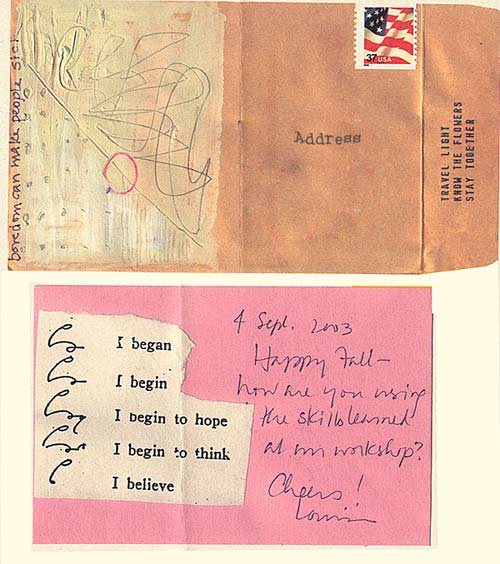 boredom can make people sick
37 USA
Address
TRAVEL LIGHT
KNOW THE FLOWERS
STAY TOGETHER
I began
I begin
I begin to hope
I begin to think
I believe
4 Sept. 2003
Happy Fall—
how are you using
the skills learned
at my workshop?
Cheers!